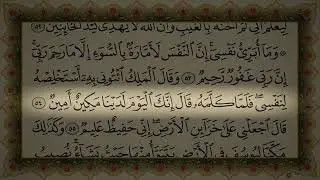 لِيَعْلَمَ أَنِّى لَمْ أَخُنْهُ بِٱلْغَيْبِ وَأَنَّ ٱللَّهَ لَا يَهْدِى كَيْدَ ٱلْخَآئِنِينَ ٥٢
وَمَآ أُبَرِّئُ نَفْسِىٓ إِنَّ ٱلنَّفْسَ لَأَمَّارَةٌۢ بِٱلسُّوٓءِ إِلَّا مَا رَحِمَ رَبِّىٓ
إِنَّ رَبِّى غَفُورٌ رَّحِيمٌ ٥٣ وَقَالَ ٱلْمَلِكُ ٱئْتُونِى بِهِۦٓ أَسْتَخْلِصْهُ
لِنَفْسِى فَلَمَّا كَلَّمَهُۥ قَالَ إِنَّكَ ٱلْيَوْمَ لَدَيْنَا مَكِينٌ أَمِينٌ ٥٤
قَالَ ٱجْعَلْنِى عَلَىٰ خَزَآئِنِ ٱلْأَرْضِ إِنِّى حَفِيظٌ عَلِيمٌ ٥٥ وَكَذَٰلِكَ
مَكَّنَّا لِيُوسُفَ فِى ٱلْأَرْضِ يَتَبَوَّأُ مِنْهَا حَيْثُ يَشَآءُ نُصِيبُ